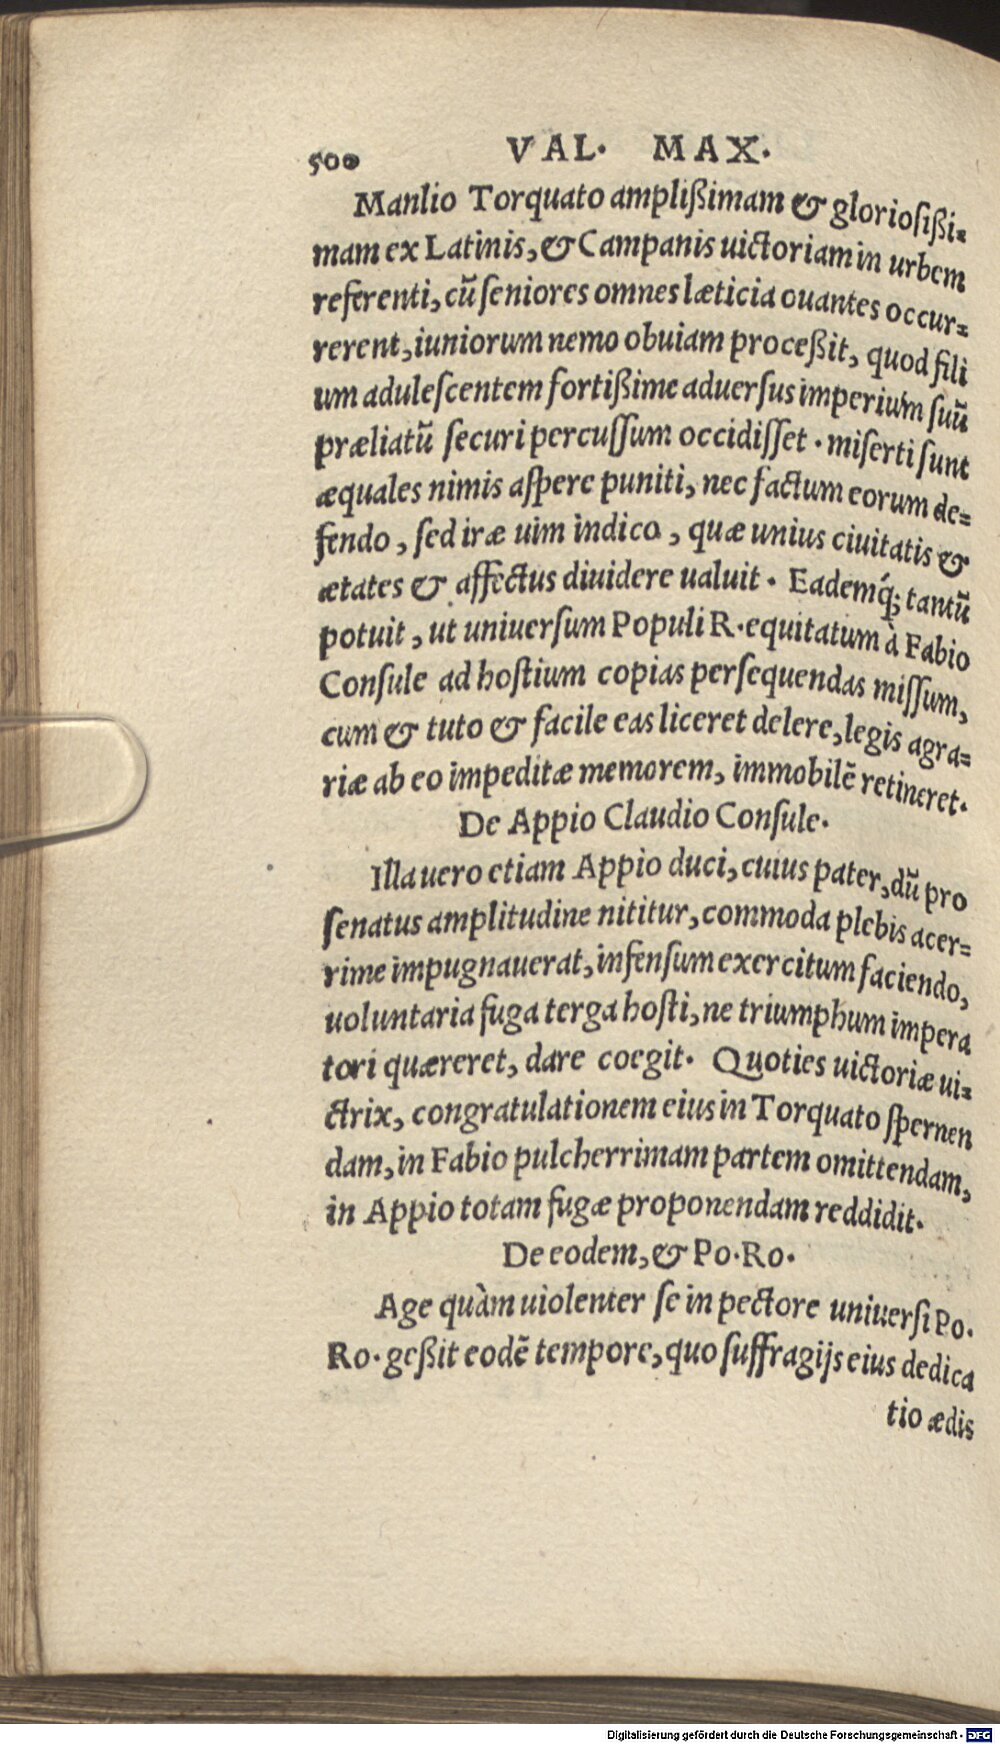 500 VAL. MAX.
Manlio Torquato amplißimam & gloriosißi=
mam ex Latinis, & Campanis uictoriam in urbem
referenti, cũ seniores omnes læticia ouantes occur=
rerent, iuniorum nemo obuiam proceßit, quod fili
um adulescentem fortißime aduersus imperium suũ
præliatũ securi percussum occidisset. miserti sunt
æquales nimis aspere puniti, nec factum eorum de=
fendo, sed iræ uim indico, quæ unius ciuitatis &
ætates & affectus diuidere ualuit. Eademq́; tantũ
potuit, ut uniuersum Populi R. equitatum à Fabio
Consule ad hostium copias persequendas missum,
cum & tuto & facile eas liceret delere, legis agra=
riæ ab eo impeditæ memorem, immobilẽ retineret.
De Appio Claudio Consule.
Illa uero etiam Appio duci, cuius pater, dũ pro
senatus amplitudine nititur, commoda plebis acer=
rime impugnauerat, infensum exercitum faciendo,
uoluntaria fuga terga hosti, ne triumphum impera
tori quæreret, dare coegit. Quoties uictoriæ ui=
ctrix, congratulationem eius in Torquato spernen
dam, in Fabio pulcherrimam partem omittendam,
in Appio totam fugæ proponendam reddidit.
De eodem, & Po. Ro.
Age quàm uiolenter se in pectore uniuersi Po.
Ro. geßit eodẽ tempore, quo suffragijs eius dedica
tio ædis
Digitalisierung gefördert durch die Deutsche Forschungsgemeinschaft - DFG